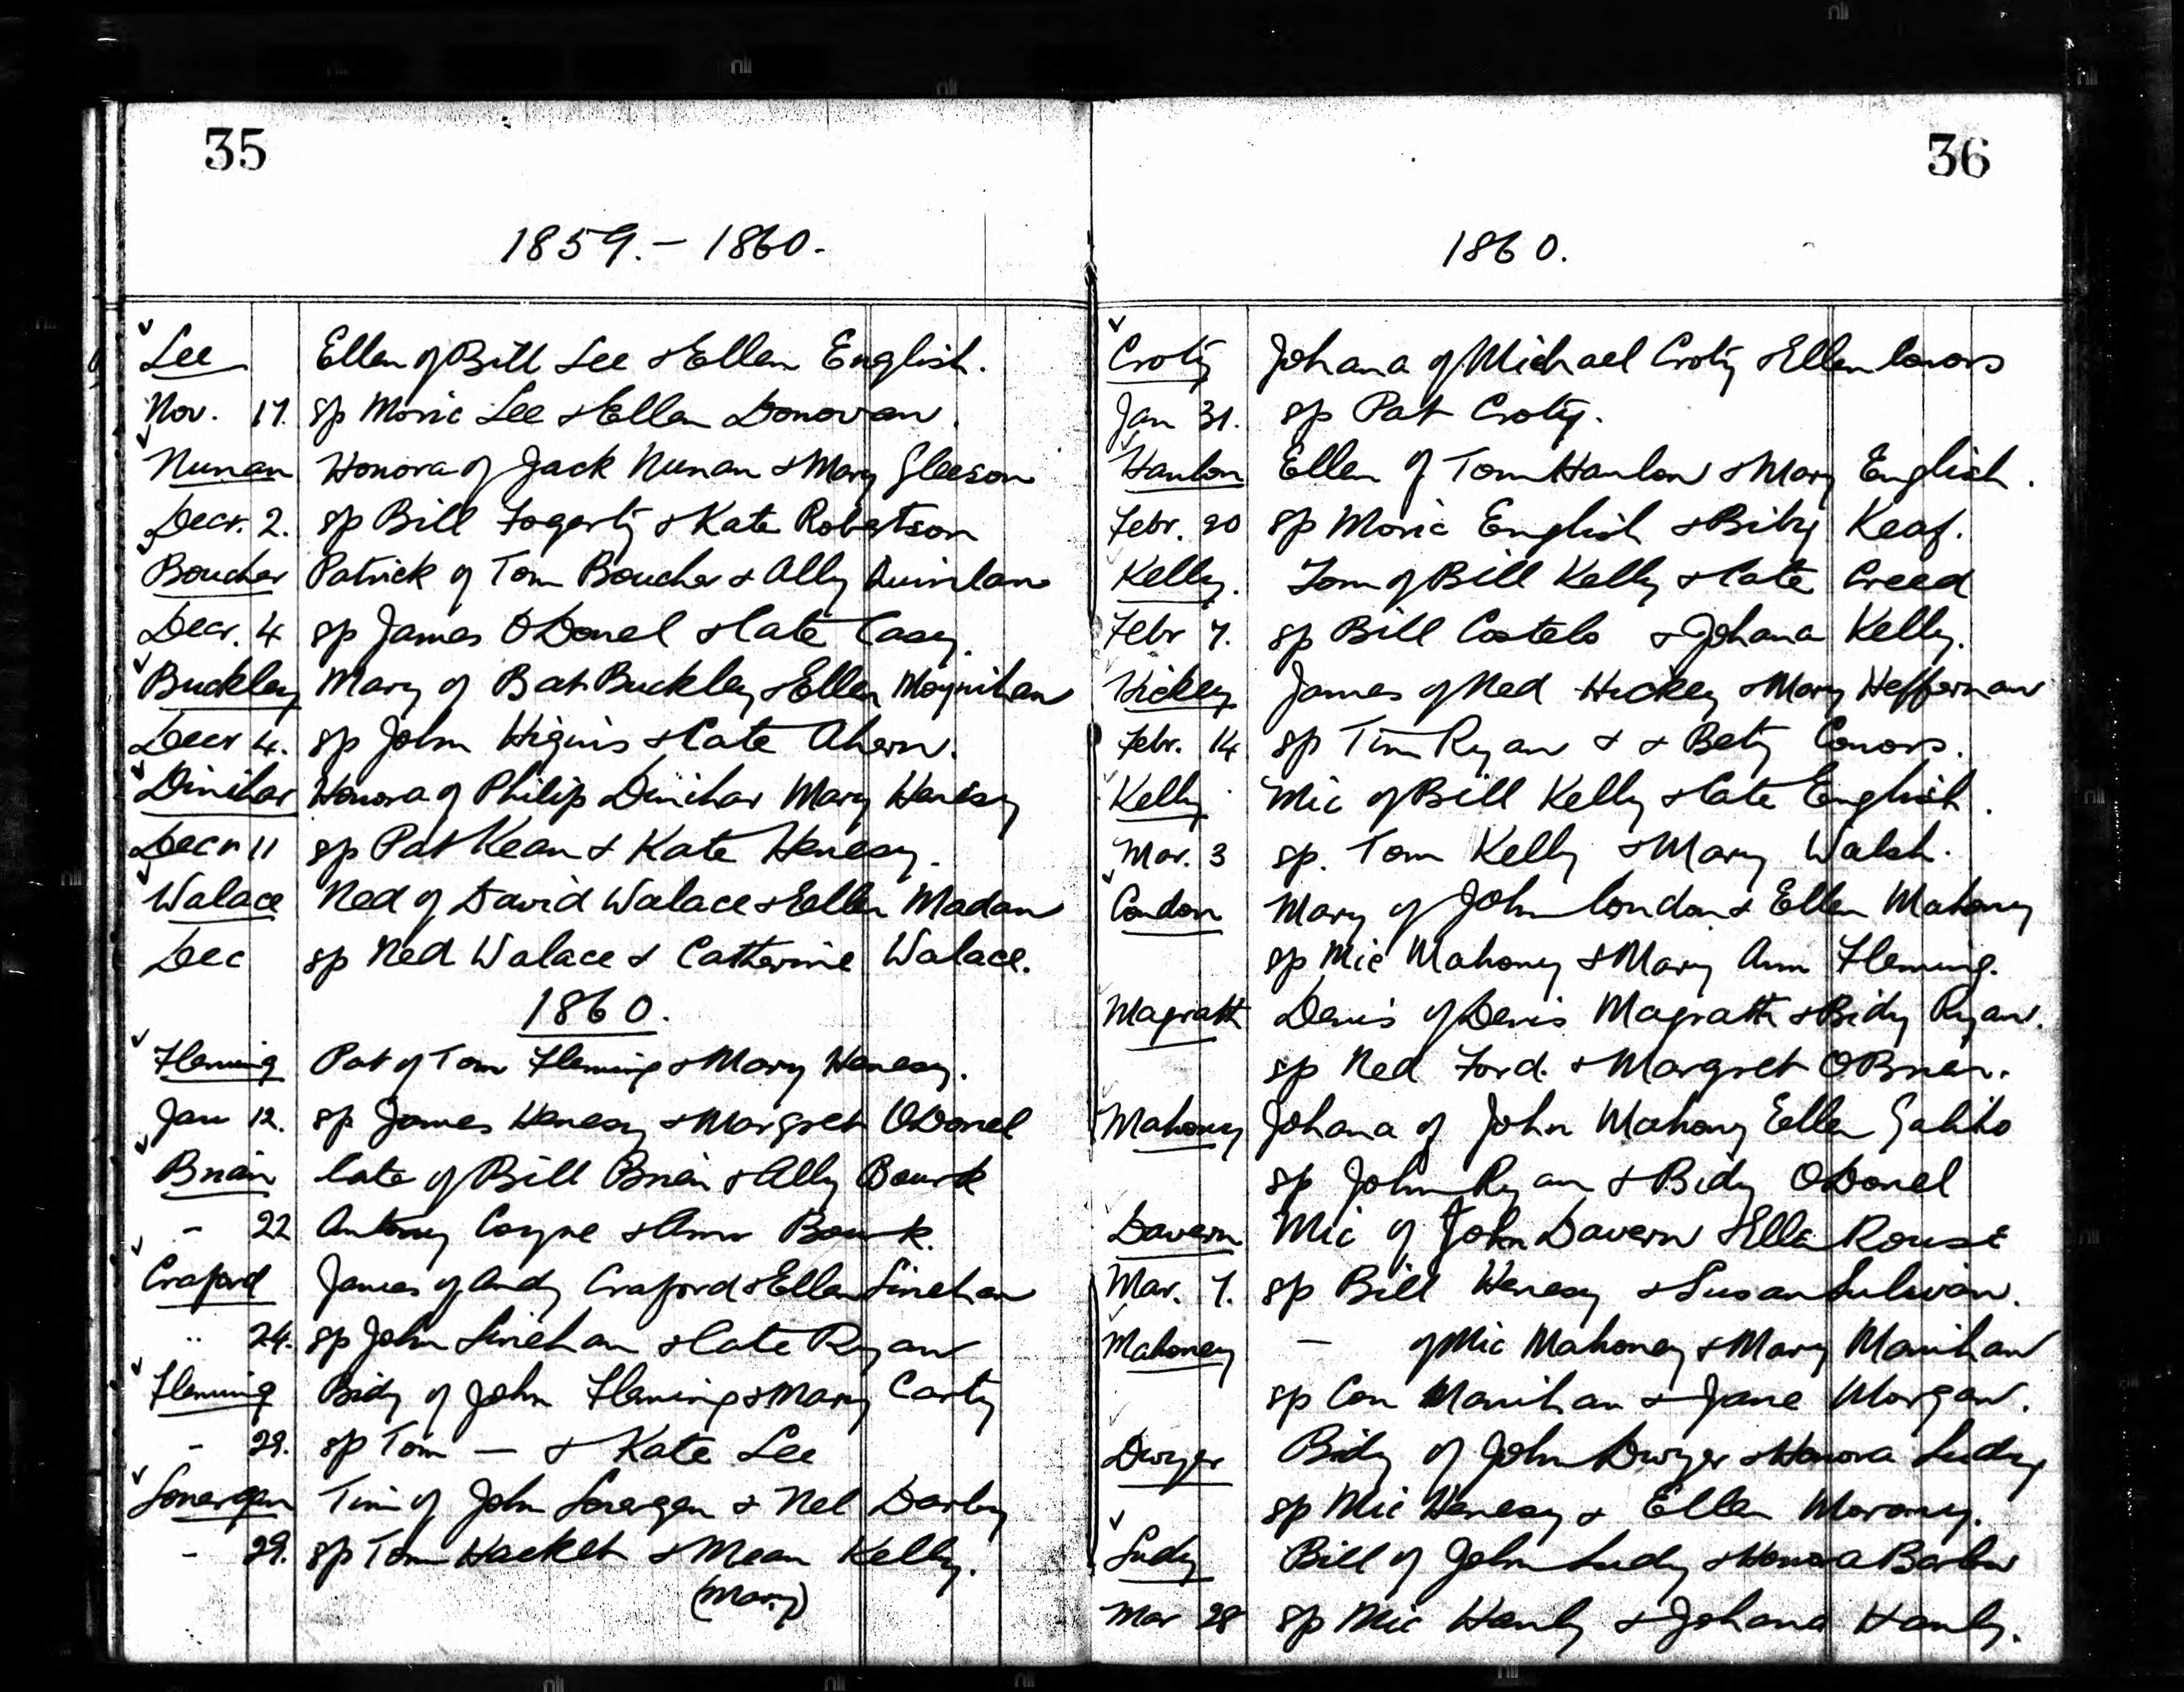 35
1859. - 1860.
Lee Ellen of Bill Lee & Ellen English.
Nov. 17. sp Moric Lee & Ellen Donovan.
Nunan Honora of Jack Nunan & Mary Gleeson
Decr. 2. sp Bill Fogerty & Kate Robertson
Boucher Patrick of Tom Boucher & Ally Quinlan
Decr. 4 sp James ODonel & Cate Casey.
Buckley Mary of Bat Buckley & Ellen Moynihan
Decr 4. sp John Higins & Cate Ahern.
Dinihar Honora of Philip Dinihar Mary Henesy
Decr 11 sp Pat Kean & Kate Henesy.
Walace Ned of David Walace & Ellen Madan
Dec sp Ned Walace & Catherine Walace.
1860.
Fleming Pat of Tom Fleming & Mary Henesy.
Jan 12. sp James Henesy & Margret ODonel
Brien Cate of Bill Brien & Ally Bourk
- 22 Antony Coyne & Ann Bourk.
Craford James of Andy Craford & Ellen Linehan
" 24. sp John Linehan & Cate Ryan
Fleming Bidy of John Fleming & Mary Carty
- 29. sp Tom — & Kate Lee
Lonergan Tim of John Lonergan & Nel Darby
- 29. sp Tom Hacket & Mean Kelly.
(Mary)
36
1860.
Croty Johana of Michael Croty & Ellen Conors
Jan 31. sp Pat Croty.
Hanlon Ellen of Tom Hanlon & Mary English.
Febr. 20 sp Moric English & Bidy Keaf.
Kelly. Tom of Bill Kelly & Cate Creed
Febr 7. sp Bill Costelo & Johana Kelly.
Hickey James of Ned Hickey & Mary Heffernan
Febr. 14 sp Tim Ryan & & Bety Conors.
Kelly Mic of Bill Kelly & Cate English.
Mar. 3 sp. Tom Kelly & Mary Walsh.
Condon Mary of John Condon & Ellen Mahony
sp Mic Mahony & Mary Ann Fleming.
Magrath Denis of Denis Magrath & Bidy Ryan.
sp Ned Ford. & Margret OBrien.
Mahony Johana of John Mahony Ellen Galiho
sp John Ryan & Bidy ODonel
Davern Mic of John Davern & Ellen Rouse
Mar. 7. sp Bill Henesy & Susan Sulivan.
Mahoney — of Mic Mahoney & Mary Manihan
sp Con Manihan & Jane Morgan.
Dwyer Bidy of John Dwyer & Honora Ludy
sp Mic Henesy & Ellen Morony.
Ludy Bill of John Ludy & Honora Barlow
Mar 28 sp Mic Hanly & Johana Hanly.